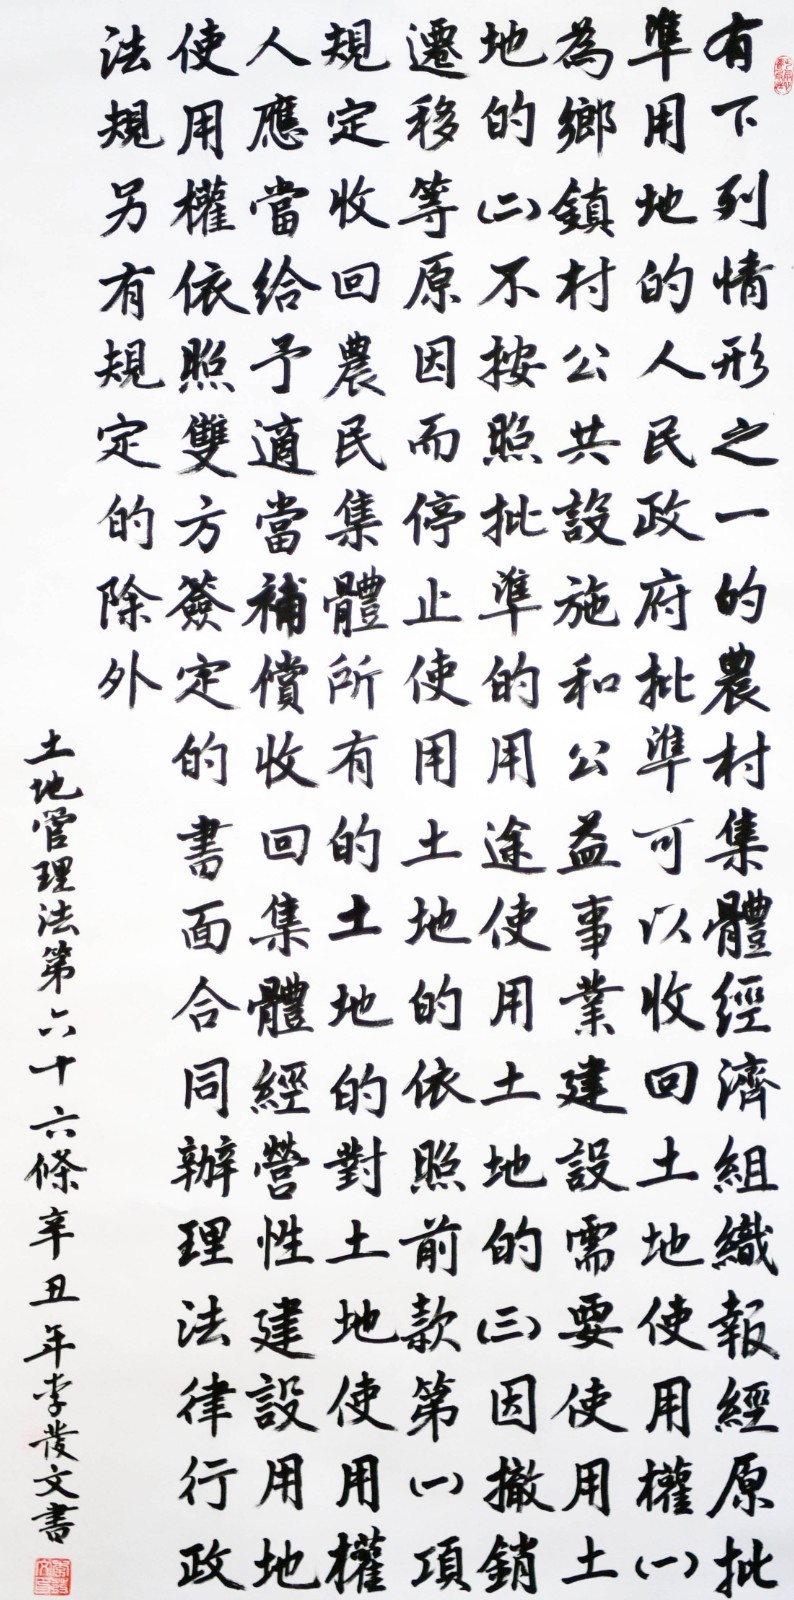 有下列情形之一的農村集體經濟組織報經原批
準用地的人民政府批準可以收回土地使用權(一)
為鄉鎮村公共設施和公益事業建設需要使用土
地的(二)不按照批準的用途使用土地的(三)因撤銷
遷移等原因而停止使用土地的依照前款第(一)項
規定收回農民集體所有的土地的對土地使用權
人應當給予適當補償收回集體經營性建設用地
使用權依照雙方簽定的書面合同辦理法律行政
法規另有規定的除外
土地管理法第六十六條辛丑年李發文書